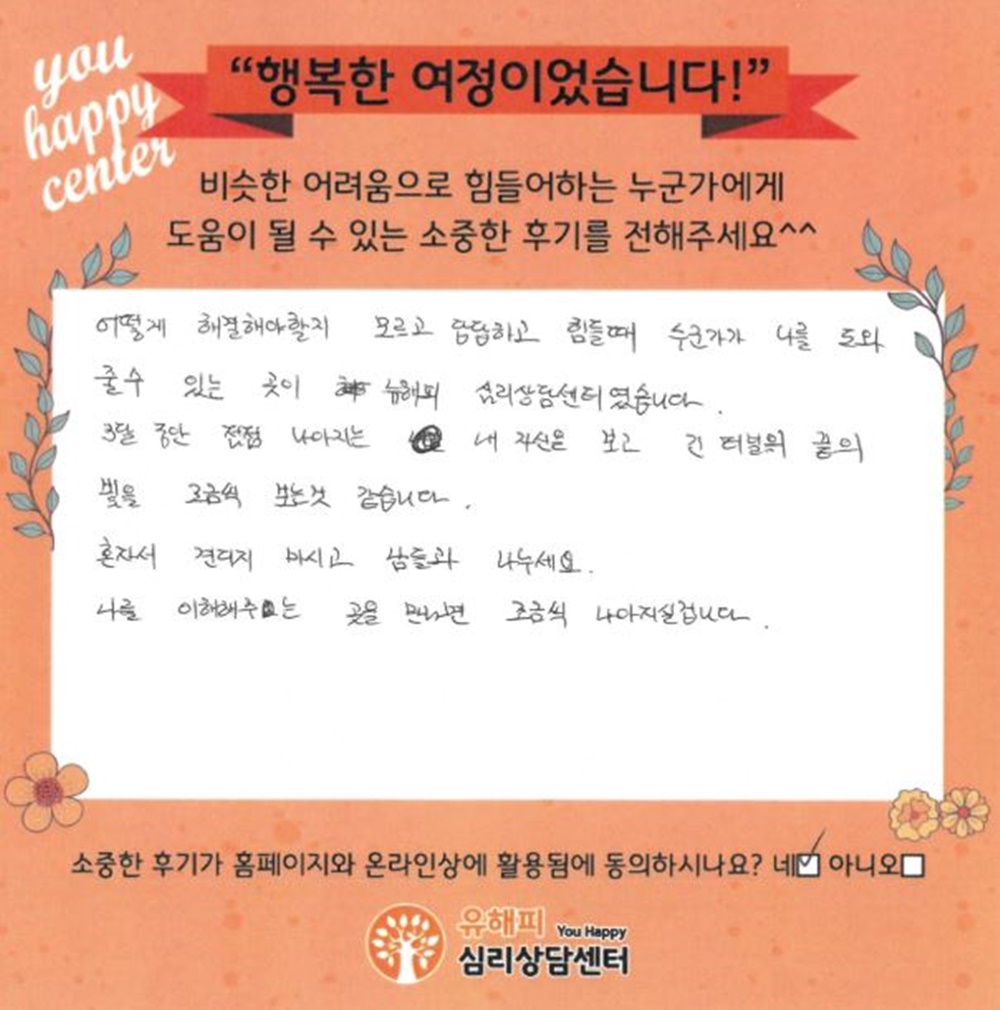 you
happy
center
“행복한 여정이었습니다!”
비슷한 어려움으로 힘들어하는 누군가에게
도움이 될 수 있는 소중한 후기를 전해주세요^^
어떻게 해결해야할지 모르고 답답하고 힘들때 누군가가 나를 도와
줄수 있는 곳이 유해피 심리상담센터였습니다.
3달 중단 점점 나아지는 내 자신을 보고 긴 터널의 끝의
빛을 조금씩 보는것 같습니다.
혼자서 견디지 마시고 남들과 나누세요.
나를 이해해주는 곳을 만나면 조금씩 나아지실겁니다.
소중한 후기가 홈페이지와 온라인상에 활용됨에 동의하시나요? 네☑ 아니오☐
유해피 You Happy
심리상담센터